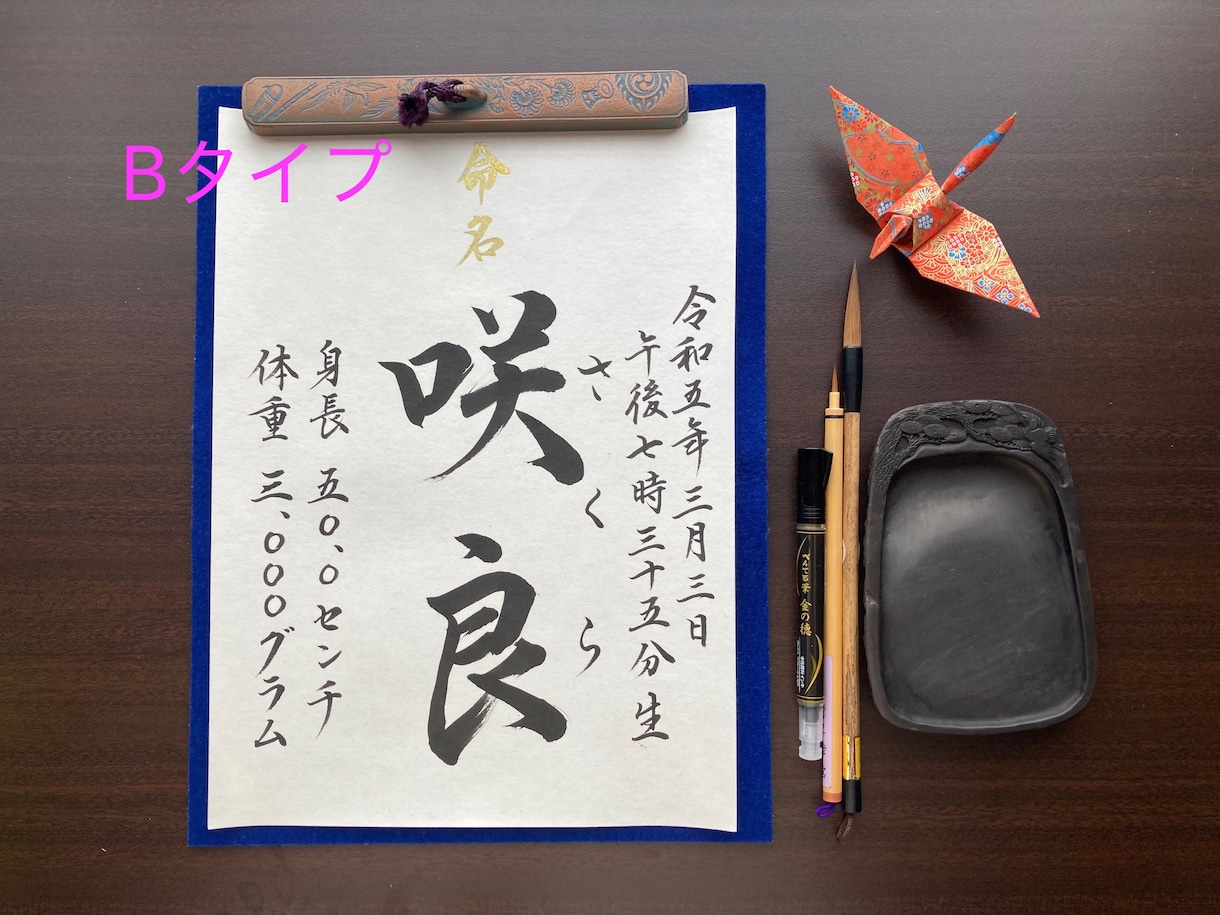 Bタイプ
命名
令和五年三月三日
午後七時三十五分生
さくら
咲良
身長 五〇、〇センチ
体重 三、〇〇〇グラム
ぺんてる筆 金の穂